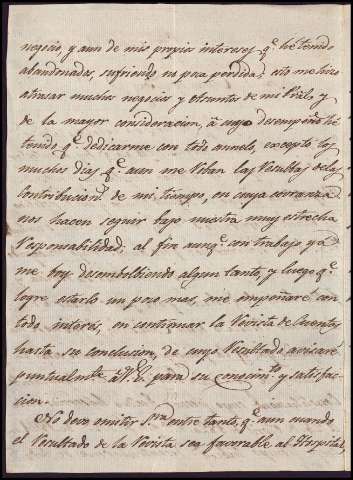 negocio, y aun de mis propios intereses, q.e he tenido
abandonados, sufriendo no poca perdida; esto me hizo
atrasar muchos negocios y asuntos de mi
de la mayor consideracion, â cuyo desempeño he
tenido q.e dedicarme con todo anhelo, excepto los
muchos dias q.e aun me roban las resultas de las
Contribucion.s de mi tiempo, en cuya cobranza
nos hacen seguir bajo nuestra muy estrecha
responsabilidad; al fin aunq.e con trabajo ya
me voy desembolbiendo algun tanto, y luego q.e
logre estarlo un poco mas, me impeñaré con
todo interes, en continuar la Revista de Cuentas
hasta su conclusion, de cuyo Resultado avisaré
puntualm.te á V.E. para su conocim.to y satisfac-
cion.
No devo omitir entre tanto, q.e aun cuando
el Resultado de la Revista sea favorable al Hospital,